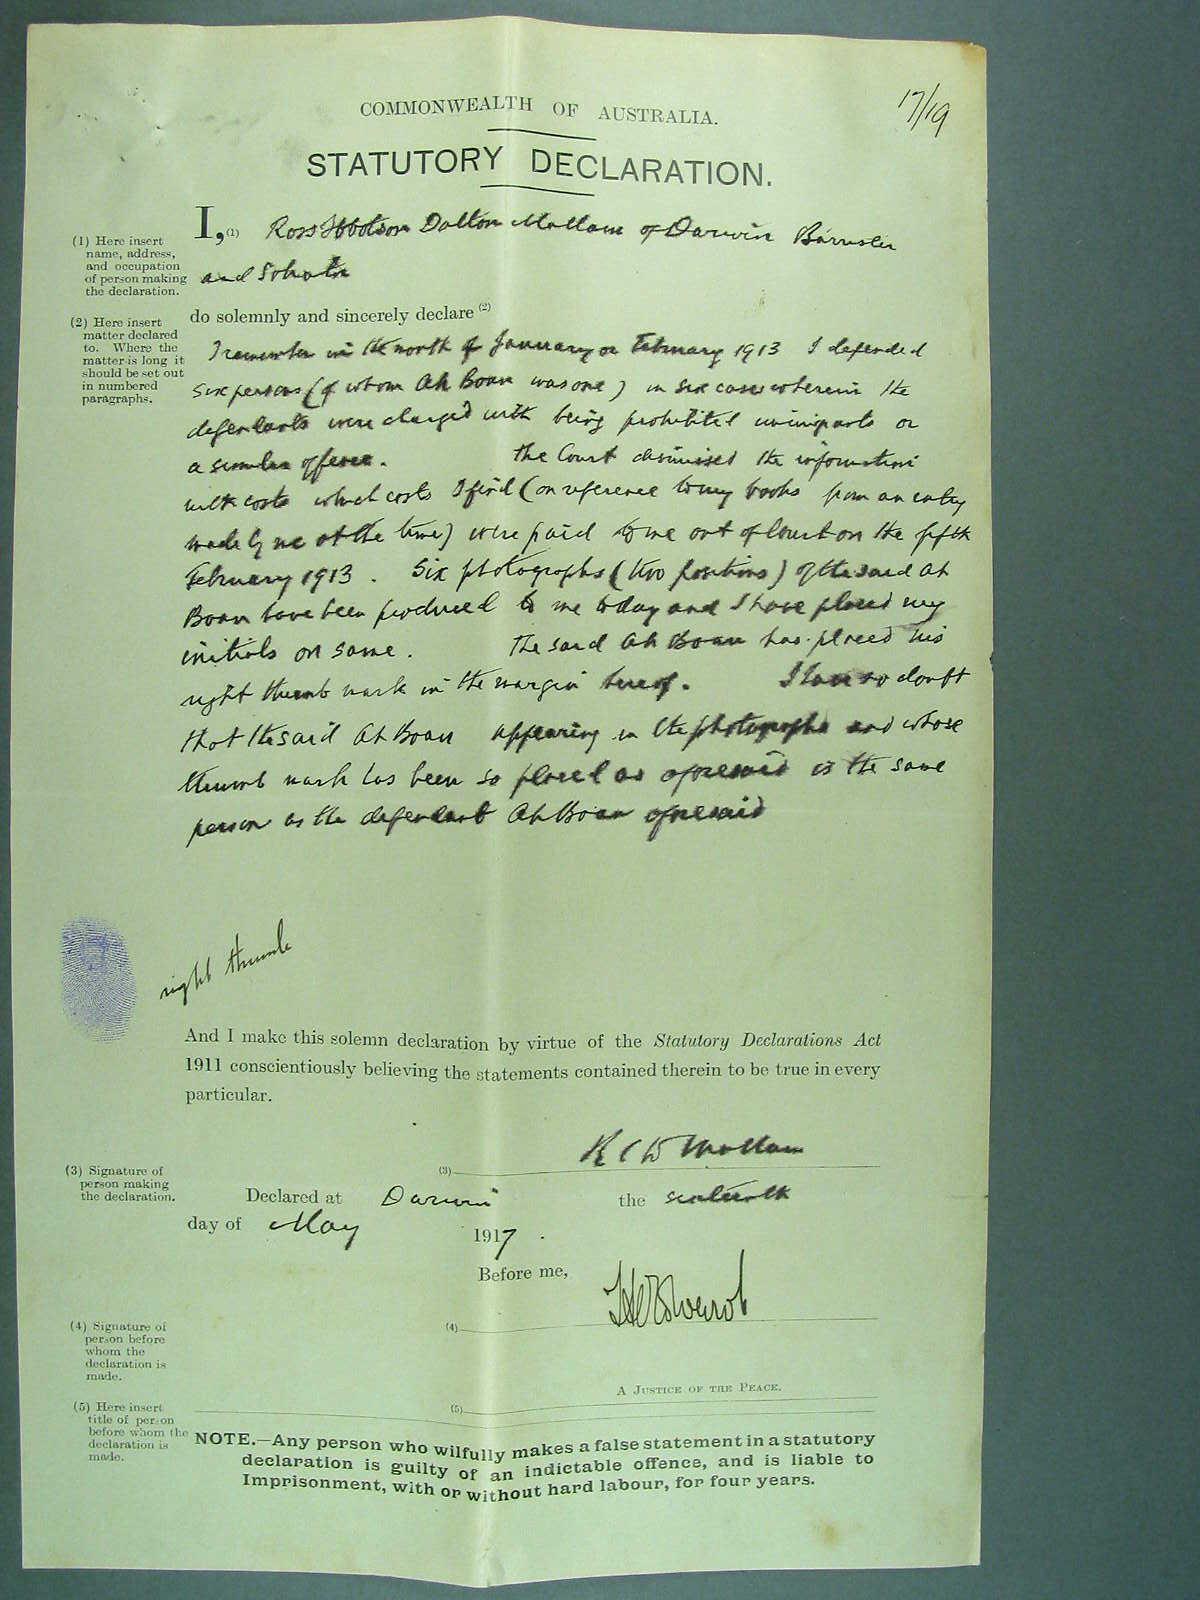 17/19
COMMONWEALTH OF AUSTRALIA.
STATUTORY DECLARATION.
I, (1) Ross Ibbotson Dalton Mallam of Darwin Barrister
and Solicitor
(1) Here insert
name, address,
and occupation
of person making
the declaration.
do solemnly and sincerely declare (2)
(2) Here insert
matter declared
to. Where the
matter is long it
should be set out
in numbered
paragraphs.
I remember in the month of January or February 1913 I defended
six persons (of whom Ah Boan was one) in six cases wherein the
defendants were charged with being prohibited immigrants or
a similar offence. The Court dismissed the information
with costs which costs I find (on reference to my books from an entry
made by me at the time) were paid to me out of Court on the fifth
February 1913. Six photographs (two positions) of the said Ah
Boan have been produced to me today and I have placed my
initials on same. The said Ah Boan has placed his
right thumb mark in the margin hereof. I have no doubt
that the said Ah Boan appearing in the photographs and whose
thumb mark has been so placed as aforesaid is the same
person as the defendant Ah Boan aforesaid
right thumb
And I make this solemn declaration by virtue of the Statutory Declarations Act
1911 conscientiously believing the statements contained therein to be true in every
particular.
(3) Signature of
person making
the declaration.
(3) R I D Mallam
Declared at Darwin the sixteenth
day of May 1917.
Before me,
(4) Signature of
person before
whom the
declaration is
made.
(4)
A JUSTICE OF THE PEACE.
(5) Here insert
title of person
before whom the
declaration is
made.
(5)
NOTE.—Any person who wilfully makes a false statement in a statutory
declaration is guilty of an indictable offence, and is liable to
Imprisonment, with or without hard labour, for four years.